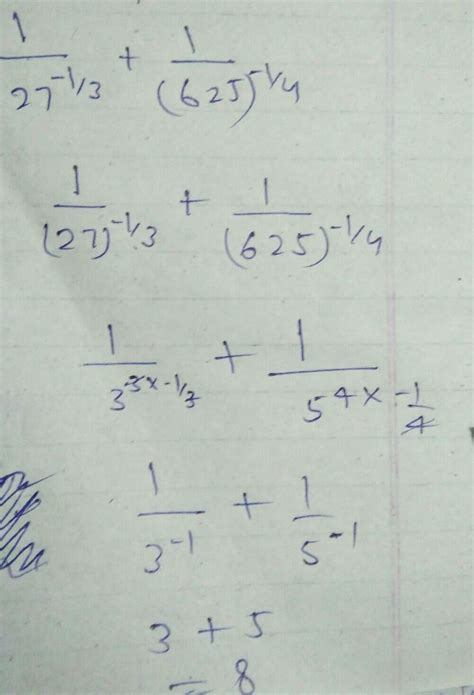 1/27^-1/3 + 1/(625)^-1/4
1/(27)^-1/3 + 1/(625)^-1/4
1/3^3×-1/3 + 1/5^4×-1/4
1/3^-1 + 1/5^-1
3 + 5
= 8